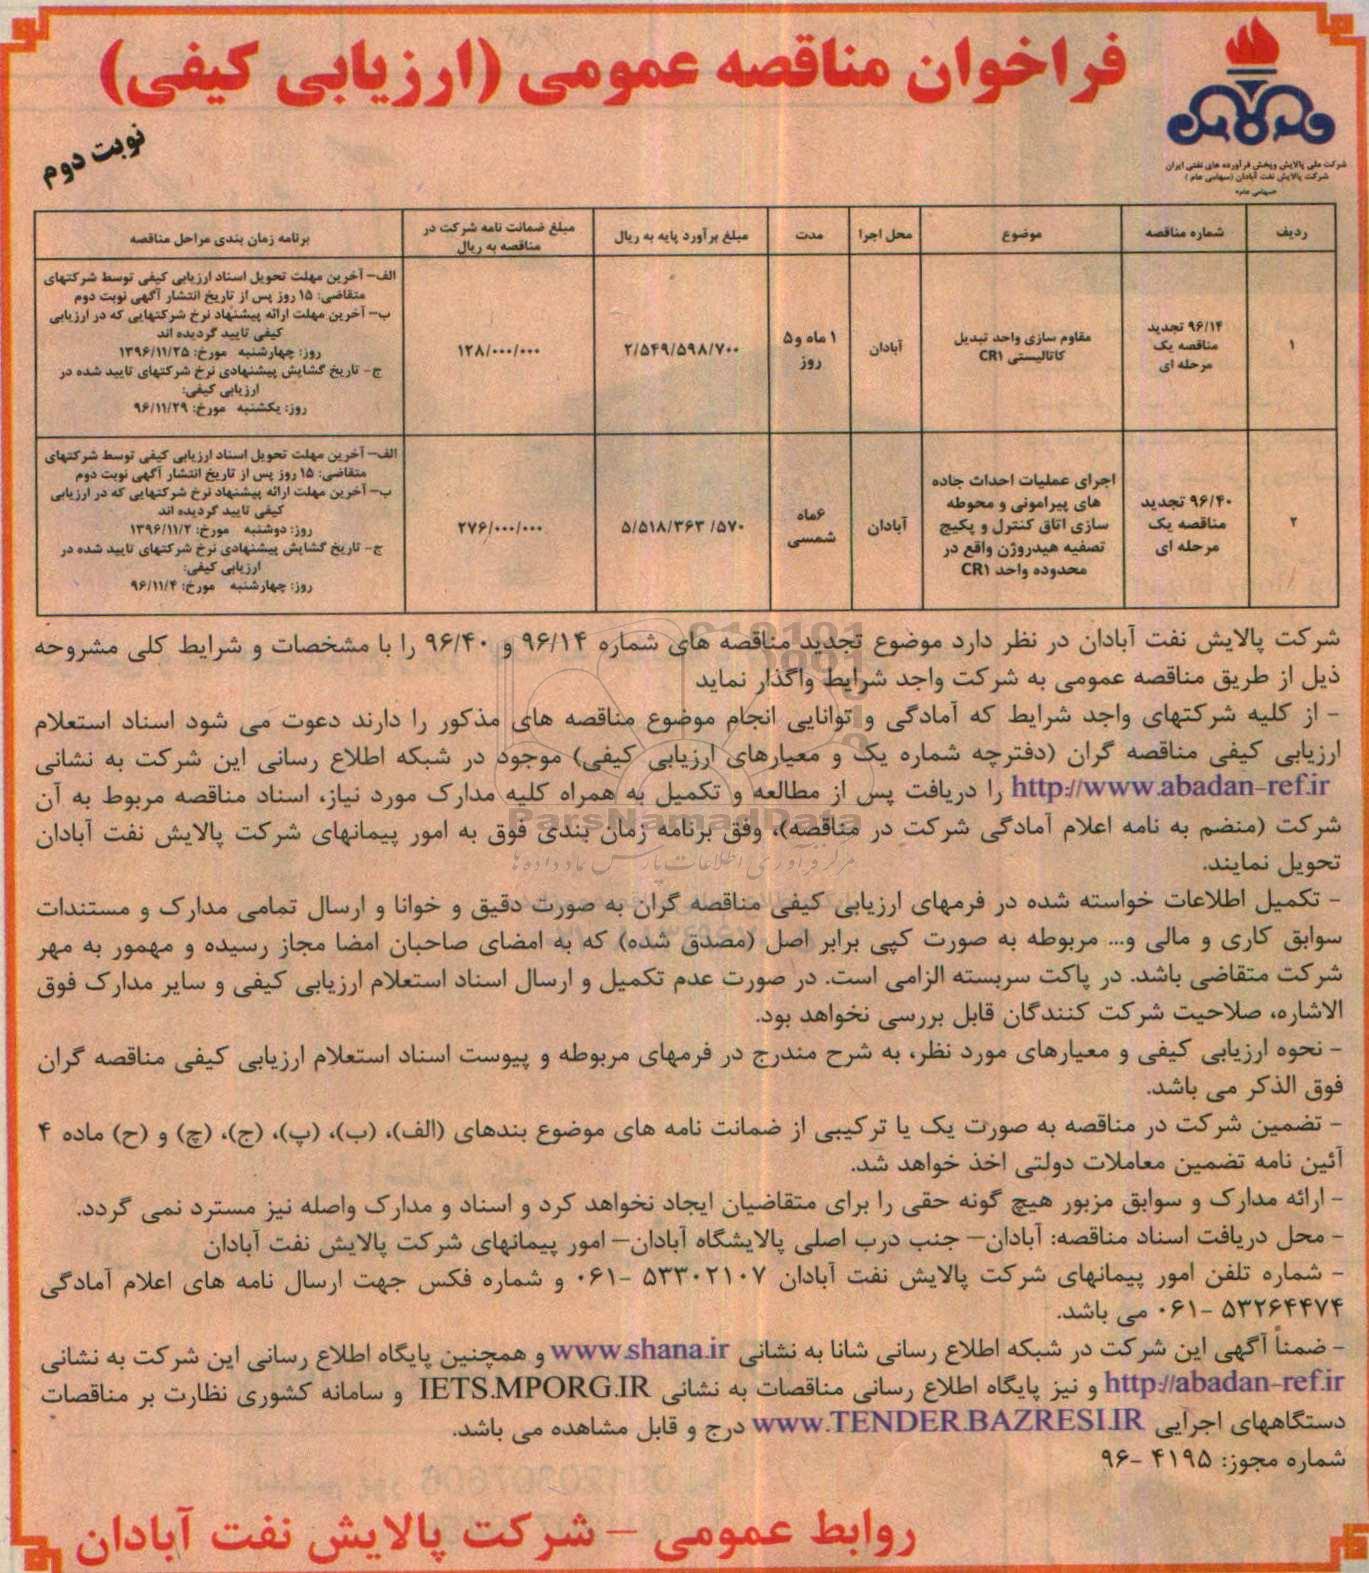 فراخوان مناقصه عمومی (ارزیابی کیفی)
نوبت دوم
شرکت ملی پالایش وپخش فرآورده های نفتی ایران
شرکت پالایش نفت آبادان (سهامی عام)
«سهامی عام»
ردیف
شماره مناقصه
موضوع
محل اجرا
مدت
مبلغ برآورد پایه به ریال
مبلغ ضمانت نامه شرکت در
مناقصه به ریال
برنامه زمان بندی مراحل مناقصه
۱
۹۶/۱۴ تجدید
مناقصه یک
مرحله ای
مقاوم سازی واحد تبدیل
کاتالیستی CR۱
آبادان
۱ ماه و۵
روز
۲/۵۴۹/۵۹۸/۷۰۰
۱۲۸/۰۰۰/۰۰۰
الف– آخرین مهلت تحویل اسناد ارزیابی کیفی توسط شرکتهای
متقاضی: ۱۵ روز پس از تاریخ انتشار آگهی نوبت دوم
ب– آخرین مهلت ارائه پیشنهاد نرخ شرکتهایی که در ارزیابی
کیفی تایید گردیده اند
روز: چهارشنبه مورخ: ۱۳۹۶/۱۱/۲۵
ج– تاریخ گشایش پیشنهادی نرخ شرکتهای تایید شده در
ارزیابی کیفی:
روز: یکشنبه مورخ: ۹۶/۱۱/۲۹
۲
۹۶/۴۰ تجدید
مناقصه یک
مرحله ای
اجرای عملیات احداث جاده
های پیرامونی و محوطه
سازی اتاق کنترل و پکیج
تصفیه هیدروژن واقع در
محدوده واحد CR۱
آبادان
۶ماه
شمسی
۵/۵۱۸/۳۶۳ /۵۷۰
۲۷۶/۰۰۰/۰۰۰
الف– آخرین مهلت تحویل اسناد ارزیابی کیفی توسط شرکتهای
متقاضی: ۱۵ روز پس از تاریخ انتشار آگهی نوبت دوم
ب– آخرین مهلت ارائه پیشنهاد نرخ شرکتهایی که در ارزیابی
کیفی تایید گردیده اند
روز: دوشنبه مورخ: ۱۳۹۶/۱۱/۲
ج– تاریخ گشایش پیشنهادی نرخ شرکتهای تایید شده در
ارزیابی کیفی:
روز: چهارشنبه مورخ: ۹۶/۱۱/۴
شرکت پالایش نفت آبادان در نظر دارد موضوع تجدید مناقصه های شماره ۹۶/۱۴ و ۹۶/۴۰ را با مشخصات و شرایط کلی مشروحه
ذیل از طریق مناقصه عمومی به شرکت واجد شرایط واگذار نماید
– از کلیه شرکتهای واجد شرایط که آمادگی و توانایی انجام موضوع مناقصه های مذکور را دارند دعوت می شود اسناد استعلام
ارزیابی کیفی مناقصه گران (دفترچه شماره یک و معیارهای ارزیابی کیفی) موجود در شبکه اطلاع رسانی این شرکت به نشانی
http://www.abadan-ref.ir را دریافت پس از مطالعه و تکمیل به همراه کلیه مدارک مورد نیاز، اسناد مناقصه مربوط به آن
شرکت (منضم به نامه اعلام آمادگی شرکت در مناقصه)، وفق برنامه زمان بندی فوق به امور پیمانهای شرکت پالایش نفت آبادان
تحویل نمایند.
ParsNamadData
مرکز فرآوری اطلاعات پارس نماد داده ها
– تکمیل اطلاعات خواسته شده در فرمهای ارزیابی کیفی مناقصه گران به صورت دقیق و خوانا و ارسال تمامی مدارک و مستندات
سوابق کاری و مالی و... مربوطه به صورت کپی برابر اصل (مصدق شده) که به امضای صاحبان امضا مجاز رسیده و مهمور به مهر
شرکت متقاضی باشد. در پاکت سربسته الزامی است. در صورت عدم تکمیل و ارسال اسناد استعلام ارزیابی کیفی و سایر مدارک فوق
الاشاره، صلاحیت شرکت کنندگان قابل بررسی نخواهد بود.
– نحوه ارزیابی کیفی و معیارهای مورد نظر، به شرح مندرج در فرمهای مربوطه و پیوست اسناد استعلام ارزیابی کیفی مناقصه گران
فوق الذکر می باشد.
– تضمین شرکت در مناقصه به صورت یک یا ترکیبی از ضمانت نامه های موضوع بندهای (الف)، (ب)، (پ)، (ج)، (چ) و (ح) ماده ۴
آئین نامه تضمین معاملات دولتی اخذ خواهد شد.
– ارائه مدارک و سوابق مزبور هیچ گونه حقی را برای متقاضیان ایجاد نخواهد کرد و اسناد و مدارک واصله نیز مسترد نمی گردد.
– محل دریافت اسناد مناقصه: آبادان– جنب درب اصلی پالایشگاه آبادان– امور پیمانهای شرکت پالایش نفت آبادان
– شماره تلفن امور پیمانهای شرکت پالایش نفت آبادان ۵۳۳۰۲۱۰۷ –۰۶۱ و شماره فکس جهت ارسال نامه های اعلام آمادگی
۵۳۲۶۴۴۷۴ –۰۶۱ می باشد.
– ضمناً آگهی این شرکت در شبکه اطلاع رسانی شانا به نشانی www.shana.ir و همچنین پایگاه اطلاع رسانی این شرکت به نشانی
http://abadan-ref.ir و نیز پایگاه اطلاع رسانی مناقصات به نشانی IETS.MPORG.IR و سامانه کشوری نظارت بر مناقصات
دستگاههای اجرایی www.TENDER.BAZRESI.IR درج و قابل مشاهده می باشد.
شماره مجوز: ۴۱۹۵ –۹۶
روابط عمومی – شرکت پالایش نفت آبادان